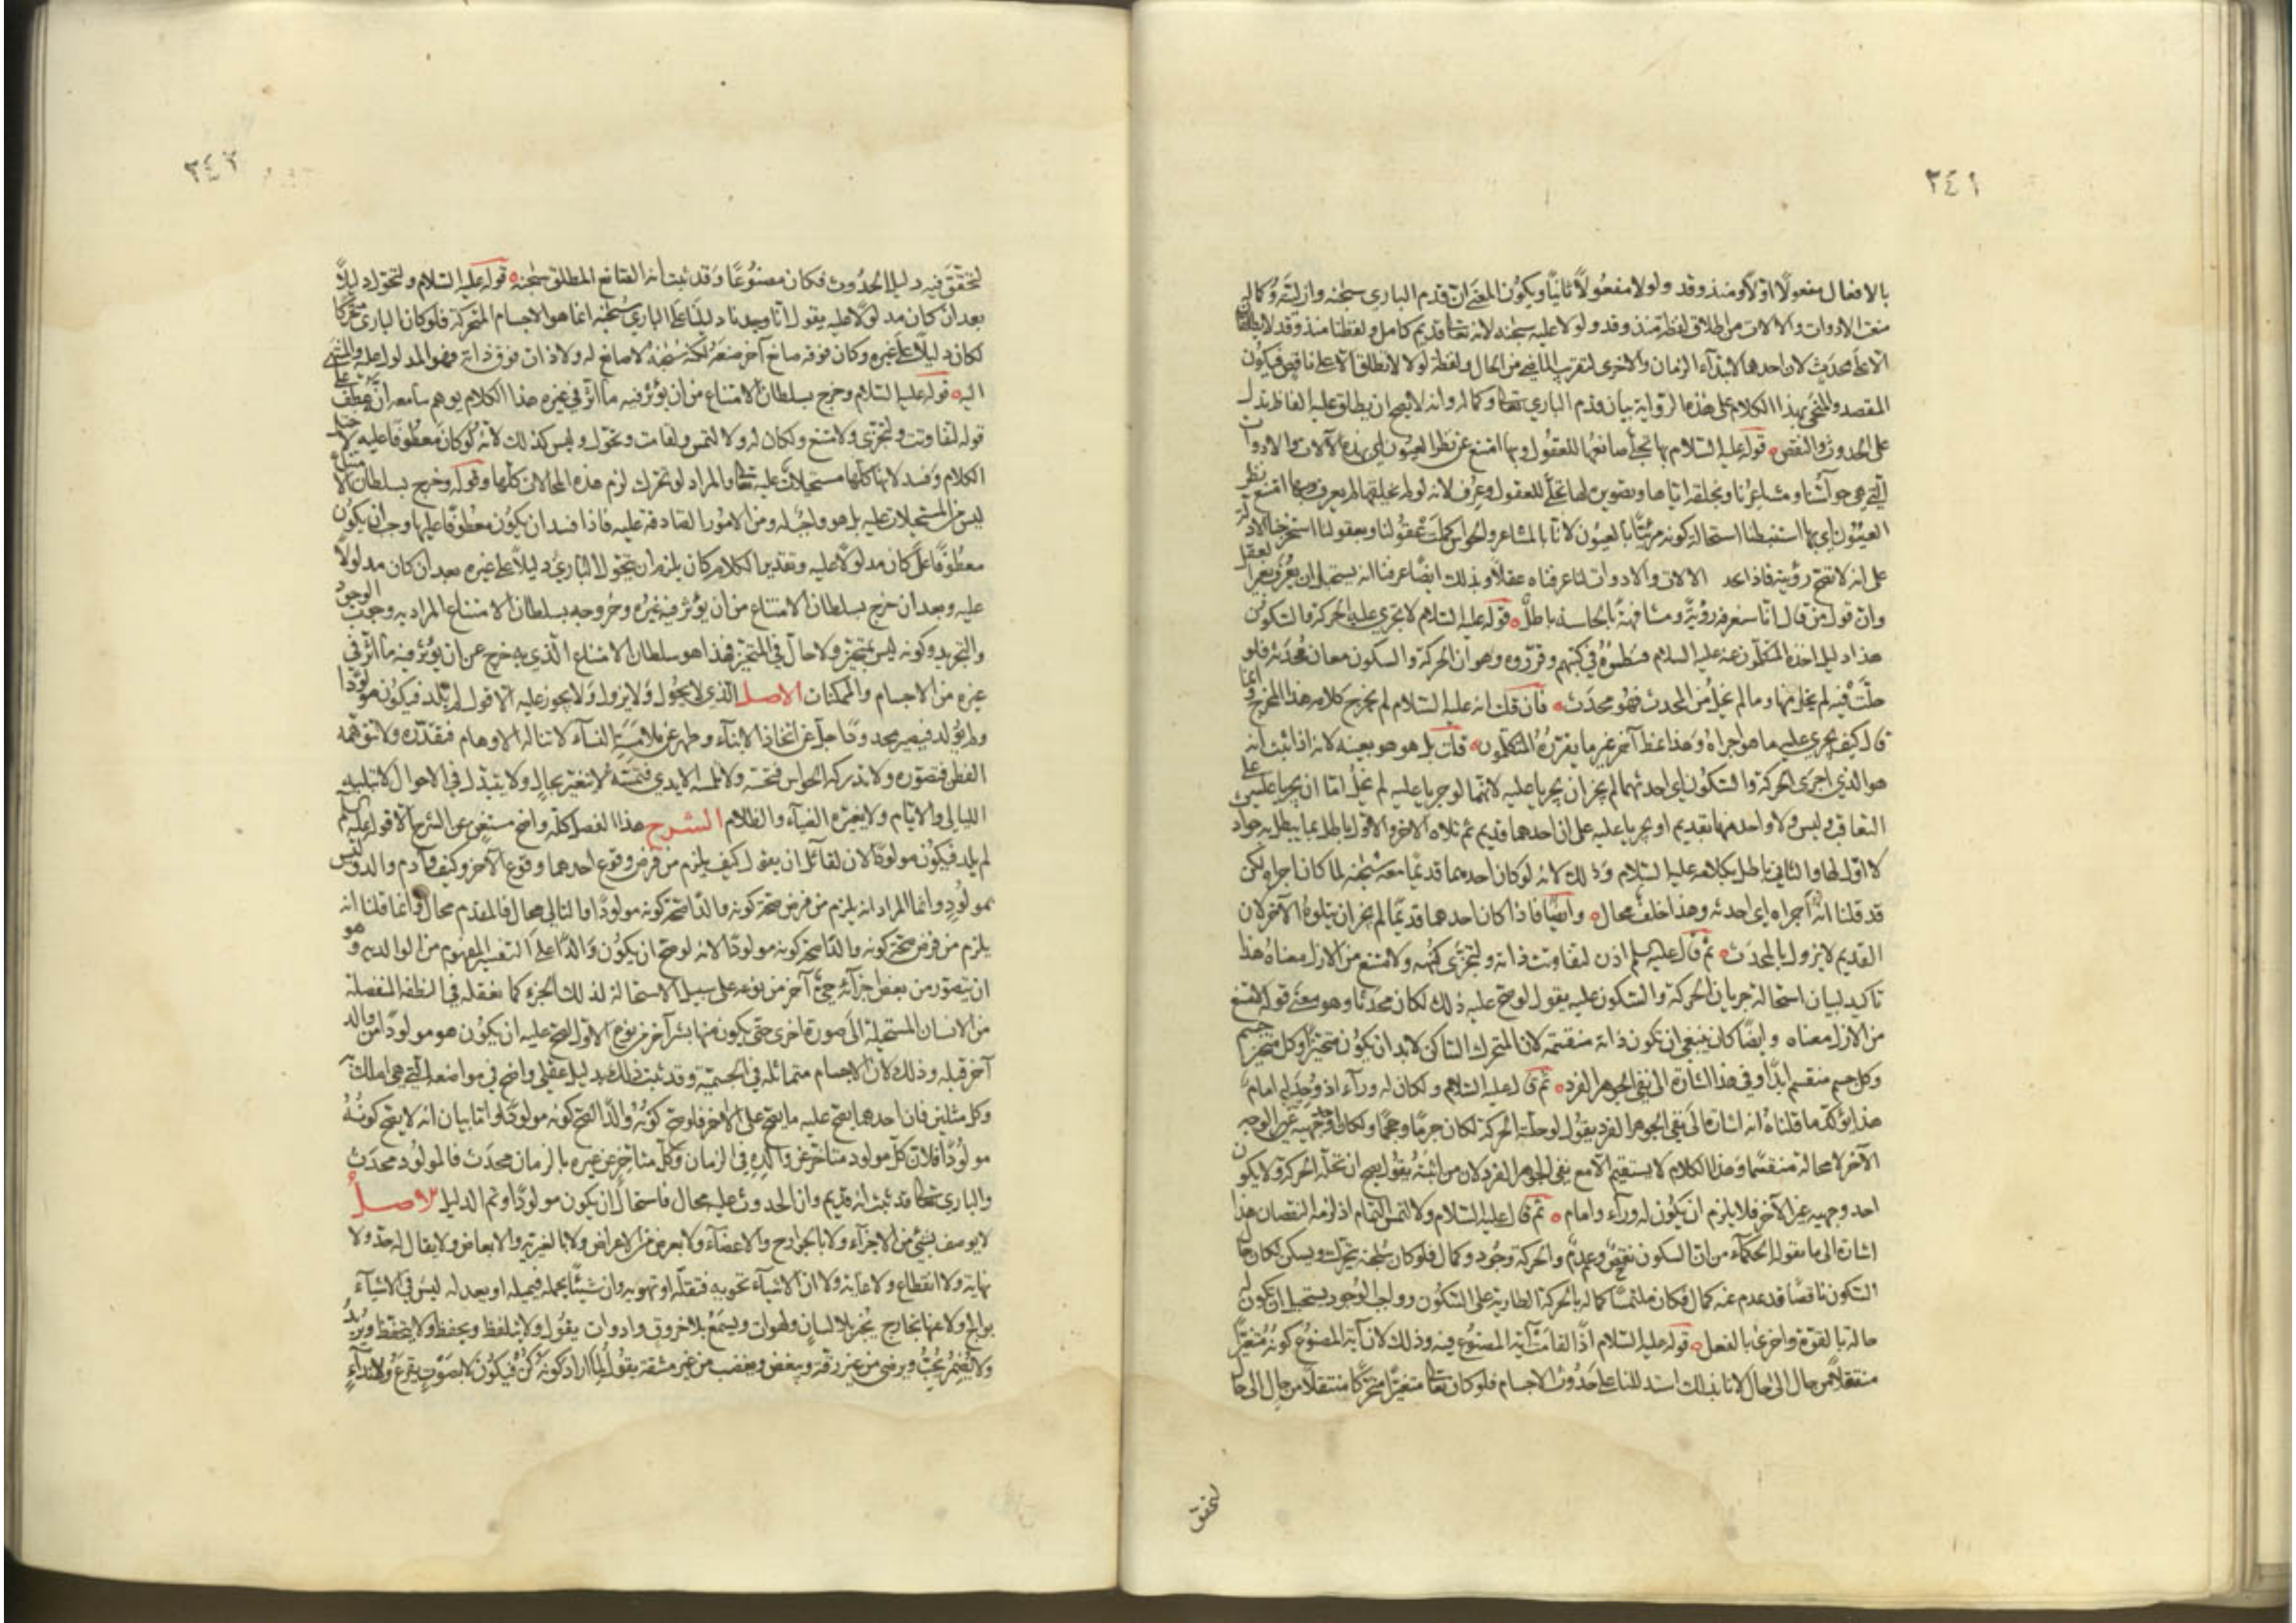 ٣٤١
بالافعال مفعولا اولا ومنذ وقد ولولا مفعولا ثانيا ويكون المعنى ان قدم الباري سبحنه وازليته وكماله
منعت الادوات والالات من اطلاق لفظة منذ وقد ولولا عليه سبحنه لانه تعالى قديم كامل ولفظتا منذ وقد لا يطلقان
الا على محدث لان احدهما لابتداء الزمان والاخرى لتقريب الماضي من الحال ولفظة لولا لا تطلق الا على ناقص فيكون
المقصد والمنحى بهذا الكلام على هذه الرواية بيان قدم الباري تعالى وكماله وانه لا يصح ان يطلق عليه الفاظ تدل
على الحدوث والنقص قوله عليه السلام بها تجلى صانعها للعقول وبها امتنع عن نظر العيون اي بهذه الآلات والادوات
التي هي حواسنا ومشاعرنا وبخلقه اياها وتصويره لها تجلى للعقول وعرف لانه لو لم يخلقها لم يعرف وبها امتنع عن نظر
العيون اي بها استنبطنا استحالة كونه مرئيا بالعيون لانا بالمشاعر والحواس كملت عقولنا وبعقولنا استخرجنا الادلة
على انه لا تصح رؤيته فاذا الالات والادوات لما عرفناه عقلا وبذلك ايضا عرفنا انه يستحيل ان يعرف بغير العقل
وان قول من قال انا سنعرفه رؤية ومشافهة بالحاسة باطل قوله عليه السلام لا تجري عليه الحركة والسكون
هذا دليل اخذه المتكلمون عنه عليه السلام فنظموه في كتبهم وقرروه وهو ان الحركة والسكون معان محدثة فلو
حلت فيه لم يخل منها وما لم يخل من المحدث فهو محدث فان قلت انه عليه السلام لم يخرج كلامه هذا المخرج وانما
قال كيف يجري عليه ما هو اجراه وهذا نمط آخر غير ما يقرره المتكلمون قلت بل هو هو بعينه لانه اذا ثبت انه
هو الذي اجرى الحركة والسكون اي احدثهما لم يجز ان يجريا عليه لانهما لو جريا عليه لم يخل اما ان يجريا عليه على
التعاقب وليس ولا واحد منهما بقديم او يجريا عليه على ان احدهما قديم ثم تلاه الآخر والاول باطل بما يبطل به حوادث
لا اول لها والثاني باطل بكلامه عليه السلام وذلك لانه لو كان احدهما قديما معه سبحنه لما كان اجراه لكن
قد قلنا انه اجراه اي احدثه وهذا خلف محال وايضا فاذا كان احدهما قديما لم يجز ان يتلوه الآخر لان
القديم لا يزول بالمحدث ثم قال عليه السلم اذن لتفاوتت ذاته ولتجزى كنهه ولامتنع من الازل معناه هذا
تاكيد لبيان استحالة جريان الحركة والسكون عليه يقول لو صح عليه ذلك لكان محدثا وهو معنى قوله لامتنع
من الازل معناه وايضا كان ينبغي ان تكون ذاته منقسمة لان المتحرك الساكن لابد ان يكون متحيزا وكل متحيز جسم
وكل جسم منقسم ابدا وفي هذا اشارة الى نفي الجوهر الفرد ثم قال عليه السلام ولكان له وراء اذ وجد له امام
هذا يؤكد ما قلناه انه اشارة الى نفي الجوهر الفرد يقول لو حلته الحركة لكان جرما وحجما ولكان احد وجهيه غير الوجه
الآخر لا محالة منقسما وهذا الكلام لا يستقيم الا مع نفي الجوهر الفرد لان من اثبته يقول يصح ان تحله الحركة ولا يكون
احد وجهيه غير الآخر فلا يلزم ان يكون له وراء وامام ثم قال عليه السلام ولالتمس التمام اذ لزمه النقصان هذا
اشارة الى ما يقوله الحكماء من ان السكون نقص وعدم والحركة وجود وكمال فلو كان سبحنه يتحرك ويسكن لكان حال
السكون ناقصا قد عدم عنه كماله فكان ملتمسا كماله بالحركة الطارية على السكون وواجب الوجود يستحيل ان يكون له
حالة بالقوة واخرى بالفعل قوله عليه السلام اذا لقامت آية المصنوع فيه وذلك لان آية المصنوع كونه متغيرا
منتقلا من حال الى حال لانا بذلك استدللنا على حدوث الاجسام فلو كان تعالى متغيرا متحركا منتقلا من حال الى حال
لتحقق
٣٤٢
لتحقق فيه دليل الحدوث فكان مصنوعا وقد ثبت انه الصانع المطلق سبحنه قوله عليه السلام ولتحول دليلا
بعد ان كان مدلولا عليه يقول انا وجدنا دليلنا على الباري سبحنه انما هو الاجسام المتحركة فلو كان الباري متحركا
لكان دليلا على غيره وكان فوقه صانع آخر صنعه لكنه سبحنه لا صانع له ولا ذات فوق ذاته فهو المدلول عليه والمنتهى
اليه قوله عليه السلام وخرج بسلطان الامتناع من ان يؤثر فيه ما اثر في غيره هذا الكلام يوهم سامعه انه عطف على
قوله لتفاوتت ولتجزى ولامتنع ولكان له ولالتمس ولقامت ولتحول وليس كذلك لانه لو كان معطوفا عليه لاختل
الكلام وفسد لانها كلها مستحيلات عليه تعالى والمراد لو تحرك لزم هذه المحالات كلها وقوله وخرج بسلطان الامتناع
ليس من المستحيلات عليه بل هو واجب له ومن الامور الصادقة عليه فاذا فسد ان يكون معطوفا عليها وجب ان يكون
معطوفا على كان مدلولا عليه وتقدير الكلام كان يلزم ان يتحول الباري دليلا على غيره بعد ان كان مدلولا
عليه وبعد ان خرج بسلطان الامتناع من ان يؤثر فيه غيره وخروجه بسلطان الامتناع المراد به وجوب الوجود
والتجريد وكونه ليس بمتحيز ولا حال في المتحيز فهذا هو سلطان الامتناع الذي به خرج عن ان يؤثر فيه ما اثر في
غيره من الاجسام والممكنات الاصل الذي لا يحول ولا يزول ولا يجوز عليه الافول لم يلد فيكون مولودا
ولم يولد فيصير محدودا جل عن اتخاذ الابناء وطهر عن ملامسة النساء لا تناله الاوهام فتقدره ولا تتوهمه
الفطن فتصوره ولا تدركه الحواس فتحسه ولا تلمسه الايدي فتمسه لا يتغير بحال ولا يتبدل في الاحوال لا تبليه
الليالي والايام ولا يغيره الضياء والظلام الشرح هذا الفصل كله واضح مستغن عن الشرح الا قوله عليه السلم
لم يلد فيكون مولودا لان لقائل ان يقول كيف يلزم من فرض وقوع احدهما وقوع الآخر وكيف وآدم والد وليس
بمولود وانما المراد انه يلزم من فرض صحة كونه والدا صحة كونه مولودا والتالي محال فالمقدم محال وانما قلنا انه
يلزم من فرض صحة كونه والدا صحة كونه مولودا لانه لو صح ان يكون والدا على التفسير المفهوم من الوالدية وهو
ان يتصور من بعض اجزائه حي آخر من نوعه على سبيل الاستحالة لذلك الجزء كما نعقله في النطفة المنفصلة
من الانسان المستحيلة الى صورة اخرى حتى يكون منها بشر آخر من نوع الاول لصح عليه ان يكون هو مولودا من والد
آخر قبله وذلك لان الاجسام متماثلة في الجسمية وقد ثبت ذلك بدليل عقلي واضح في مواضعه التي هي املك به
وكل مثلين فان احدهما يصح عليه ما يصح على الآخر فلو صح كونه والدا لصح كونه مولودا واما بيان انه لا يصح كونه
مولودا فلان كل مولود متاخر عن والده في الزمان وكل متاخر عن غيره بالزمان محدث فالمولود محدث
والباري تعالى قد ثبت انه قديم وان الحدوث عليه محال فاستحال ان يكون مولودا وتم الدليل الاصل
لا يوصف بشيء من الاجزاء ولا بالجوارح والاعضاء ولا بعرض من الاعراض ولا بالغيرية والابعاض ولا يقال له حد ولا
نهاية ولا انقطاع ولا غاية ولا ان الاشياء تحويه فتقله او تهويه وان شيئا يحمله فيميله او يعدله ليس في الاشياء
بوالج ولا عنها بخارج يخبر بلا لسان ولهوات ويسمع بلا خروق وادوات يقول ولا يتلفظ ويحفظ ولا يتحفظ ويريد
ولا يضمر يحب ويرضى من غير رقة ويبغض ويغضب من غير مشقة يقول لما اراد كونه كن فيكون لا بصوت يقرع ولا نداء